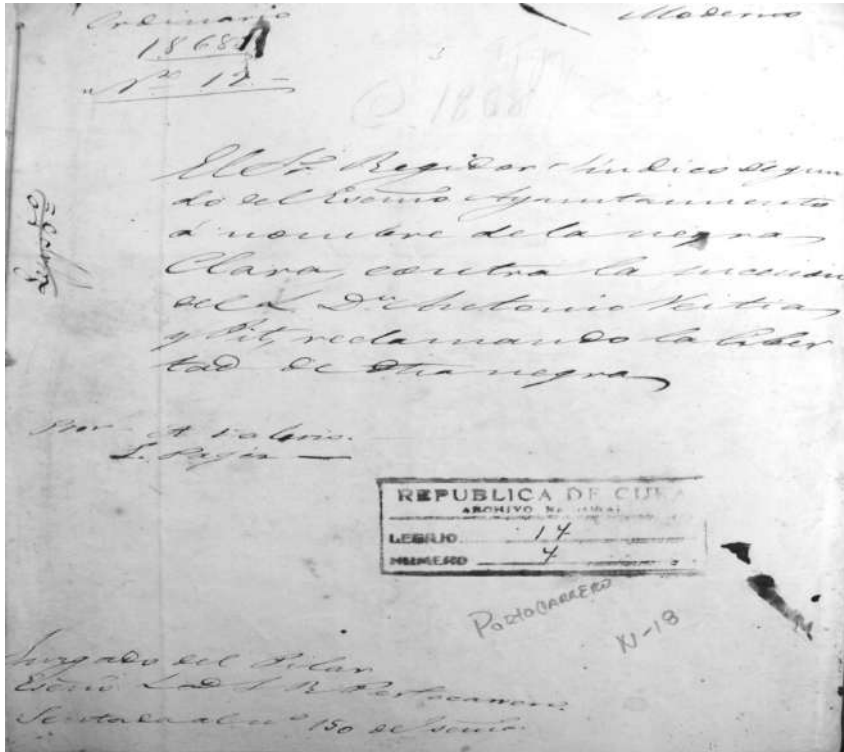 Ordinario
Moderno
1868
Nº 12.
1868
El Sr. Regidor Síndico Segun
do del Excmo Ayuntamiento
á nombre de la negra
Clara, contra la sucesion
del L. Dn Antonio Veitia
y Pit, reclamando la liber
tad de dicha negra
Por A. Valerio.
L.
REPUBLICA DE CUBA
ARCHIVO NACIONAL
LEGAJO 14
NUMERO 4
PORTOCARRERO
N-18
Juzgado del Pilar
Escno L. D. J. R. Portocarrero
Sentada al nº 150 del